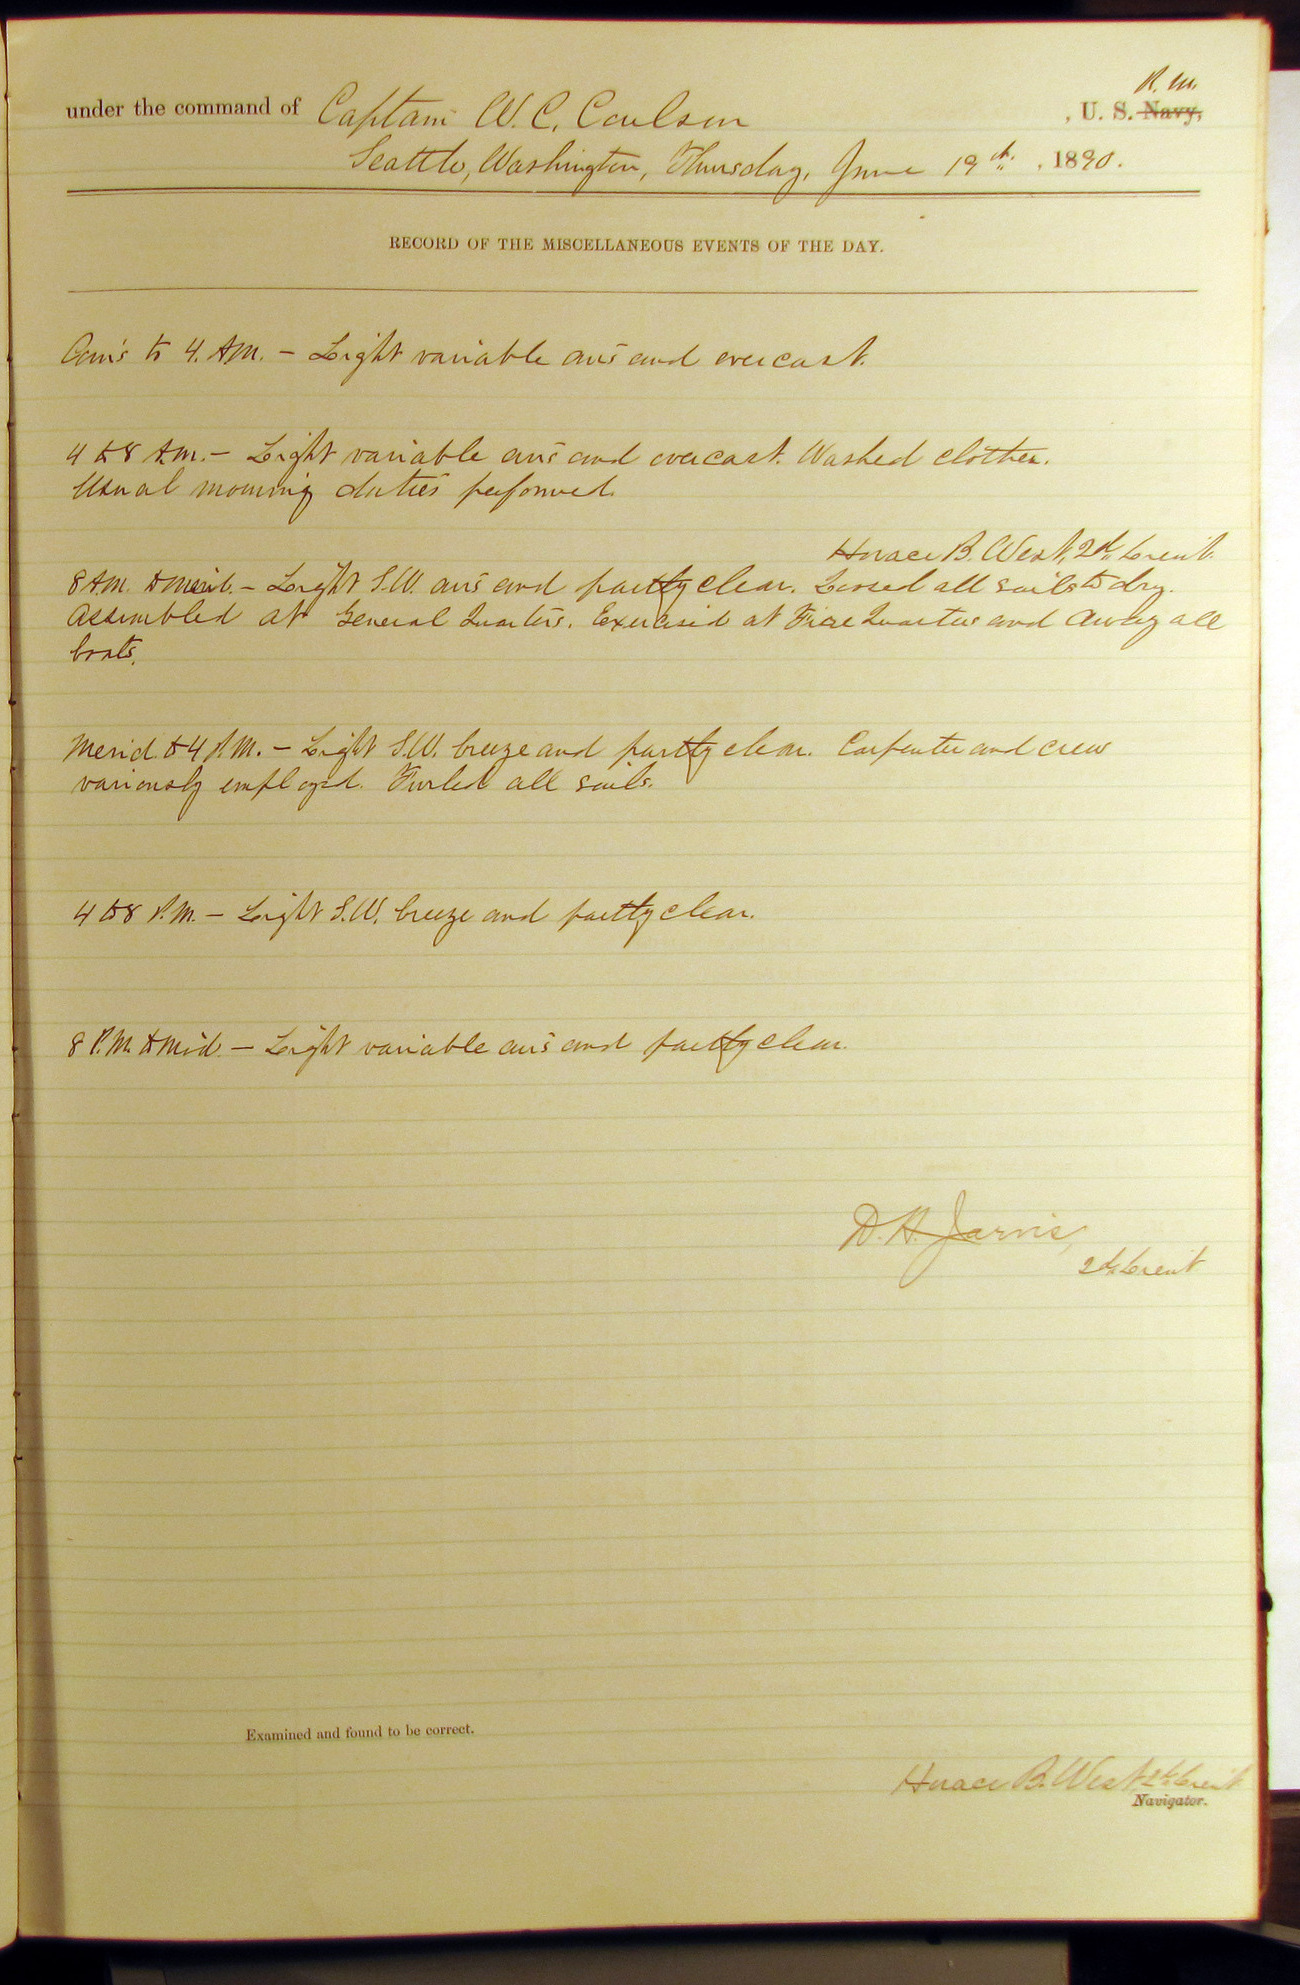 R. M.
under the command of Captain W. C. Coulson , U. S. Navy,
Seattle, Washington, Thursday, June 19th , 1890.
RECORD OF THE MISCELLANEOUS EVENTS OF THE DAY.
Com's to 4. AM. – Light variable airs and overcast.
4 to 8 A.M. – Light variable airs and overcast. Washed clothes.
Usual morning duties performed.
Horace B. West, 2d Lieut.
8 AM. to merid. – Light S.W. airs and partly clear. Loosed all sails to dry.
Assembled at General Quarters. Exercised at Fire Quarters and Away all
boats.
Merid. to 4 P.M. – Light S.W. breeze and partly clear. Carpenter and crew
variously employed. Furled all sails.
4 to 8 P.M. – Light S.W. breeze and partly clear.
8 P.M. to Mid. – Light variable airs and partly clear.
D. H. Jarvis,
2d Lieut
Examined and found to be correct.
Horace B. West 2d Lieut
Navigator.